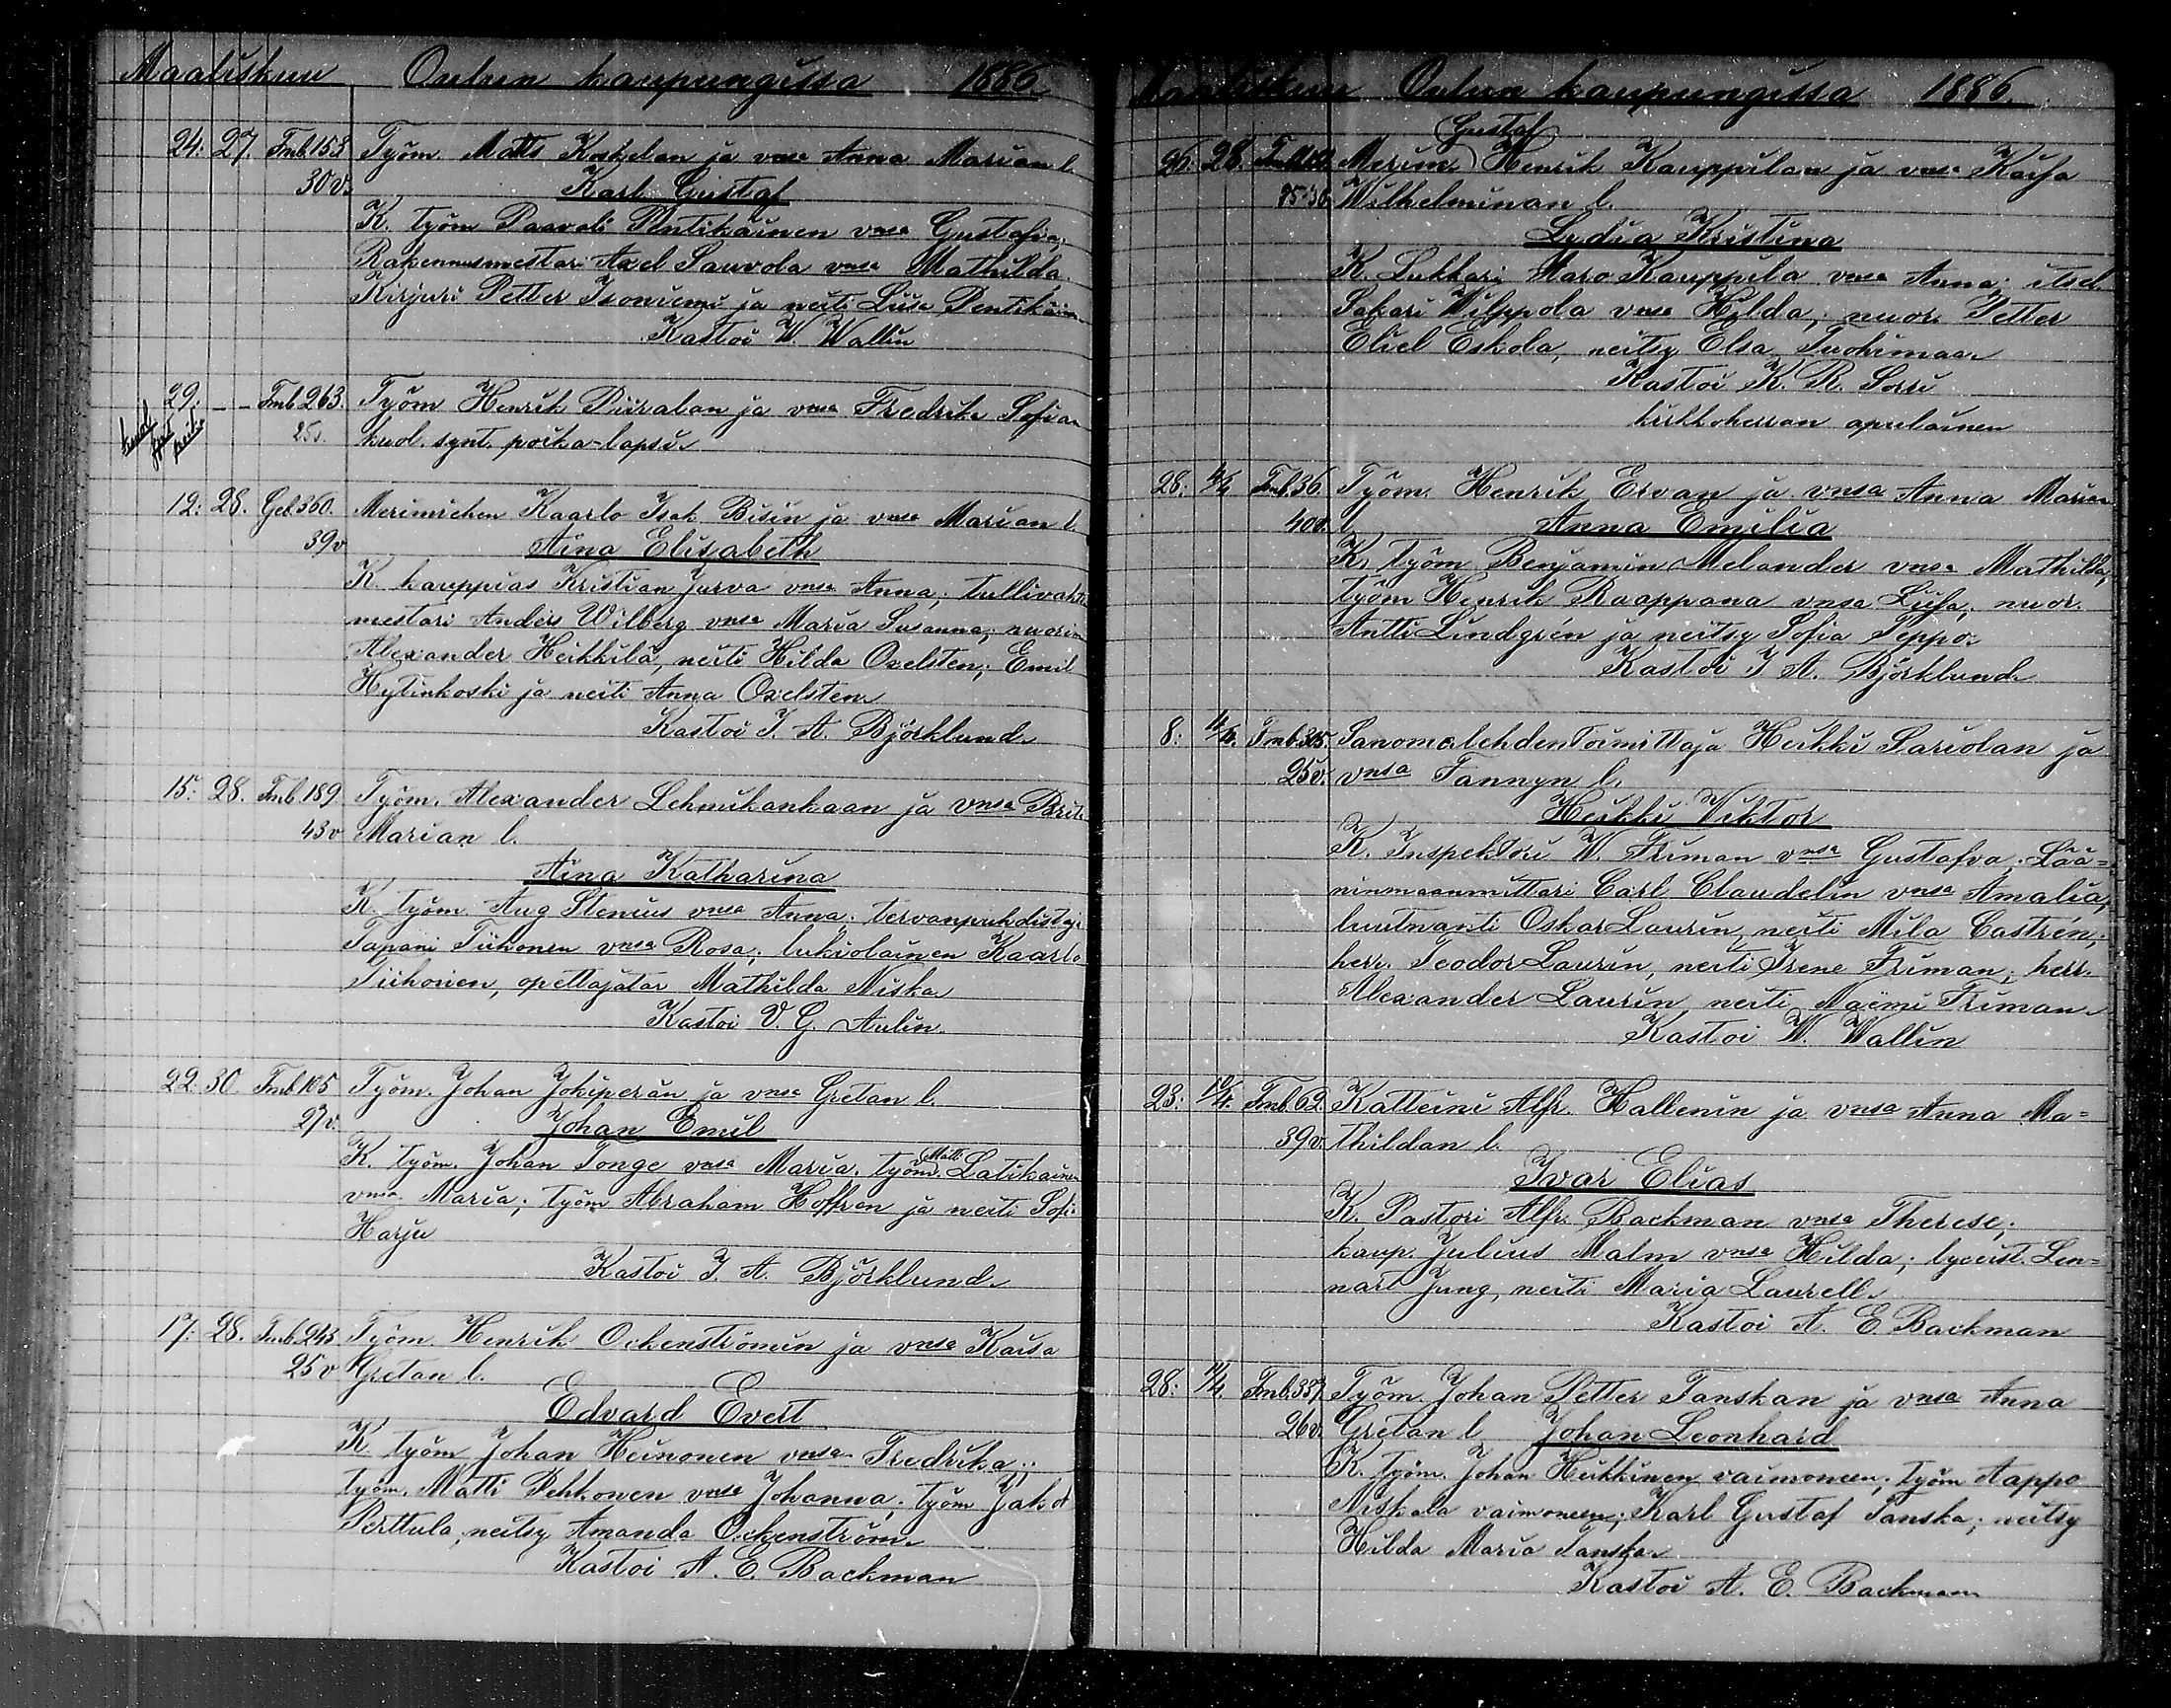 Maaliskuu Oulun kaupungissa 1886
24. 27. Tmb. 153 Työm. Matts Koskelan ja vmsa Anna Marian l.
30 v. Karl Gustaf
K. työm Paavali Pentikäinen vmsa Gustafva,
Rakennusmestari Axel Sauvola vmsa Mathilda
Kirjuri Petter Isoniemi ja neiti Liisa Pentikäinen
Kastoi W. Wallin
29. – – Tmb 263. Työm Henrik Piiralan ja vmsa Fredrika Sofian
25 v. kuol. synt. poika-lapsi.
12: 28. Geb. 360. Merimiehen Kaarlo Isak Bisin ja vmsa Marian l.
39 v Aina Elisabeth
K. kauppias Kristian Jurva vmsa Anna; tullivahti
mestari Anders Wilberg vmsa Maria Susanna; nuorim
Alexander Heikkilä, neiti Hilda Oxelsten; Emil
Hytinkoski ja neiti Anna Oxelsten
Kastoi J. A. Björklund.
15: 28. Tmb. 189 Työm. Alexander Lehmikankaan ja vmsa Brita
43 v Marian l.
Aina Katharina
K. työm. Aug Stenius vmsa Anna; tervanpuhdistaja
Tapani Tiihonen vmsa Rosa; lukiolainen Kaarlo
Tiihonen, opettajatar Mathilda Niska
Kastoi V. G. Aulin.
22. 30. Tmb. 105 Työm. Johan Jokiperän ja vmsa Gretan l.
27 v. Johan Emil
K. työm. Johan Tonge vmsa Maria. työm Matti Latikainen
vmsa Maria; työm Abraham Hoffren ja neiti Sofi
Harju
Kastoi J. A. Björklund.
17: 28. Tmb. 243 Työm. Henrik Ockenströmin ja vmsa Kaisa
25 v Gretan l.
Edvard Evert
K työm Johan Heinonen vmsa Fredrika;
työm. Matti Pehkonen vmsa Johanna; työm Jakob
Perttula, neitsy Amanda Ockenström.
Kastoi A. E. Backman
Maaliskuu Oulun kaupungissa 1886.
Gustaf
26: 28. Merim. Henrik Kauppilan ja vmsa Kaisa
Wilhelminan l.
Lydia Kristina
K. Lukkari Maro Kauppila vmsa Anna; itsel.
Sakari Wilppola vmsa Hilda; nuor. Petter
Eliel Eskola, neitsy Elsa Tuohimaa
Kastoi K. R. Sorri
kirkkoherran apulainen
28: 4/4 Tmb. 36 Työm. Henrik Ervan ja vmsa Anna Marian
40 v. l Anna Emilia
K. työm Benjamin Melander vmsa Mathilda,
työm Henrik Raappana vmsa Liisa; nuor.
Antti Lindgrén ja neitsy Sofia Seppo.
Kastoi J A. Björklund.
8: 4/4. Tmb. 305. Sanomalehden Toimittaja Heikki Sariolan ja
25 v. vmsa Fannyn l.
Heikki Viktor
K. Inspektori W. Friman vmsa Gustafva; Lää=
ninmaanmittari Carl Claudelin vmsa Amalia,
luutnanti Oskar Laurin, neiti Mila Castrén;
herr. Teodor Laurin, neiti Irene Friman; herr.
Alexander Laurin neiti Naëmi Friman.
Kastoi W. Wallin
23: 10/4. Tmb. 62. Katteini Alfr. Hallenin ja vmsa Anna Ma=
39 v. thildan l.
Ivar Elias
K. Pastori Alfr. Backman vmsa Therese;
kaup. Julius Malm vmsa Hilda; lyceist. Len=
nart Jung, neiti Maria Laurell.
Kastoi A. E. Backman
28: 11/4. Tmb. 337. Työm. Johan Petter Tanskan ja vmsa Anna
26 v. Gretan l Johan Leonhard
K. työm. Johan Heikkinen vaimoneen; työm Aappo
Niskala vaimoneen; Karl Gustaf Tanska; neitsy
Hilda Maria Tanska.
Kastoi A. E. Backman